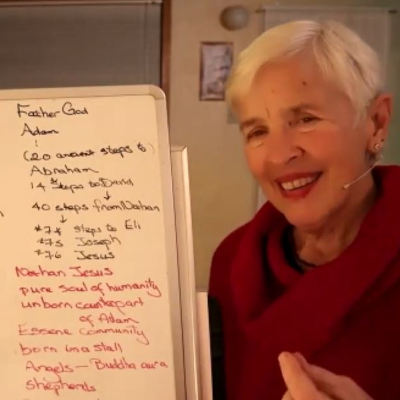 Father God
Adam
(20 ancest steps to)
Abraham
14 steps to David
40 steps from Nathan
#74 steps to Eli
#75 Joseph
#76 Jesus
Nathan Jesus
pure soul of humanity
unborn counterpart
of Adam
Essene Community
born in a stall
Angels — Buddha aura
shepherds